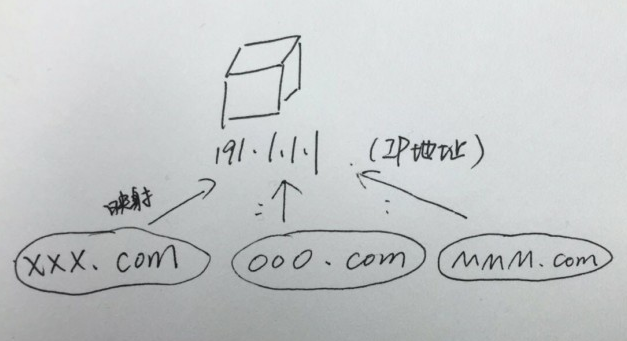 191.1.1.1 (IP地址)
映射
xxx.com ooo.com MMM.com